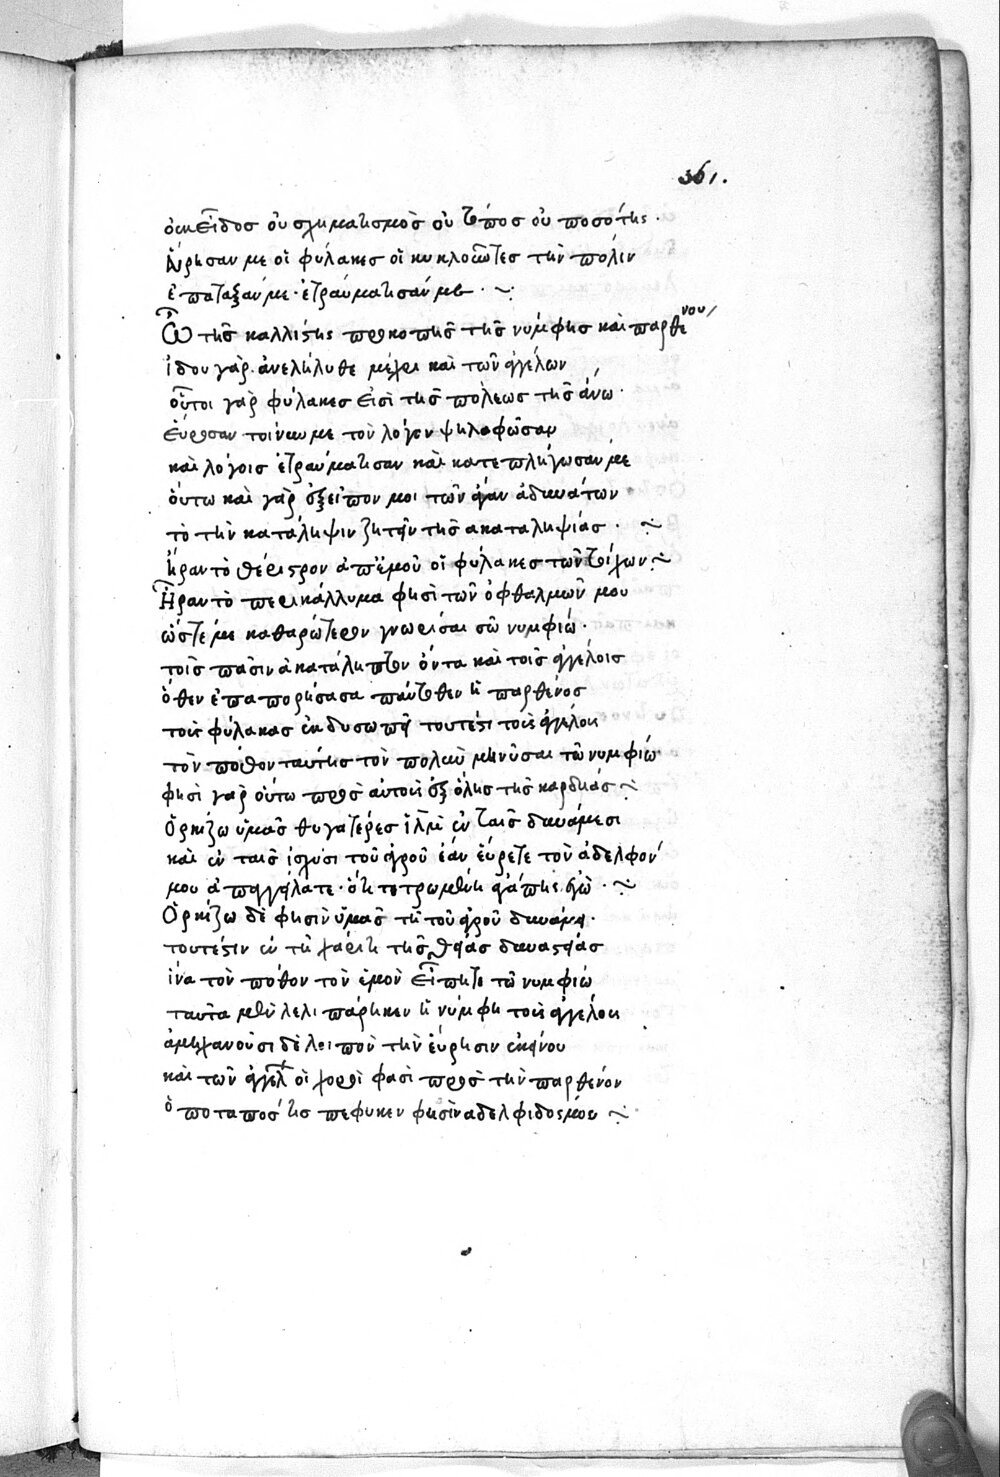 361.
οὐκ εἶδος οὐ σχηματισμὸς οὐ τύπος οὐ ποσότης.
Εὕρησάν με οἱ φύλακες οἱ κυκλοῦντες τὴν πόλιν
ἐπάταξάν με. ἐτραυμάτισάν με.
Ὢ τῆς καλλίστης προκοπῆς τῆς νύμφης καὶ παρθένου
ἰδοὺ γὰρ ἀνελήλυθε μέχρι καὶ τῶν ἀγγέλων
οὗτοι γὰρ φύλακες εἰσὶ τῆς πόλεως τῆς ἄνω.
εὕροσαν τοίνυν με τὸν λόγον ψηλαφῶσαν
καὶ λόγοις ἐτραυμάτισαν καὶ κατεπλήγωσάν με
οὕτω καὶ γὰρ ἐξεῖπον μοι τῶν ἄγαν ἀδυνάτων
τὸ τὴν κατάληψιν ζητεῖν τῆς ἀκαταληψίας.
ἦραν τὸ θέριστρον ἀπ' ἐμοῦ οἱ φύλακες τῶν τειχέων
Ἦραν τὸ περικάλυμμα φησὶ τῶν ὀφθαλμῶν μου
ὥστε με καθαρώτερον γνωρίσαι σῶ νυμφίω.
τοῖς πᾶσιν ἀκατάληπτον ὄντα καὶ τοῖς ἀγγέλοις
ὅθεν ἐπαπορήσασα πάντοθεν ἡ παρθένος
τοὺς φύλακας ἐκδυσωπεῖ τουτέστι τοὺς ἀγγέλους
τὸν πόθον ταύτης τὸν πολὺν μηνῦσαι τῶ νυμφίω
φησὶ γὰρ οὕτω πρὸς αὐτοὺς ἐξ ὅλης τῆς καρδίας
Ὁρκίζω ὑμᾶς θυγατέρες ἱλημ ἐν ταῖς δυνάμεσι
καὶ ἐν ταῖς ἰσχύσι τοῦ ἀγροῦ ἐὰν εὕρετε τὸν ἀδελφόν
μου ἀπαγγείλατε. ὅτι τετρωμένη ἀγάπης ἐγὼ.
Ὁρκίζω δὲ φησὶν ὑμᾶς τῆ τοῦ ἀγροῦ δυνάμει.
τουτέστιν ἐν τῆ χάριτι τῆς θείας δυναστείας
ἵνα τὸν πόθον τὸν ἐμὸν εἴπητε τῶ νυμφίω
ταῦτα μὲν λελιπάρηκεν ἡ νύμφη τοὺς ἀγγέλους
ἀμηχανοῦσι δὲ λοιπὸν τὴν εὕρησιν ἐκείνου
καὶ τῶν ἀγγέλ οἱ χοροὶ φασὶ πρὸς τὴν παρθένον
ὁποταπός τις πέφυκεν φησὶν ἀδελφιδός μου